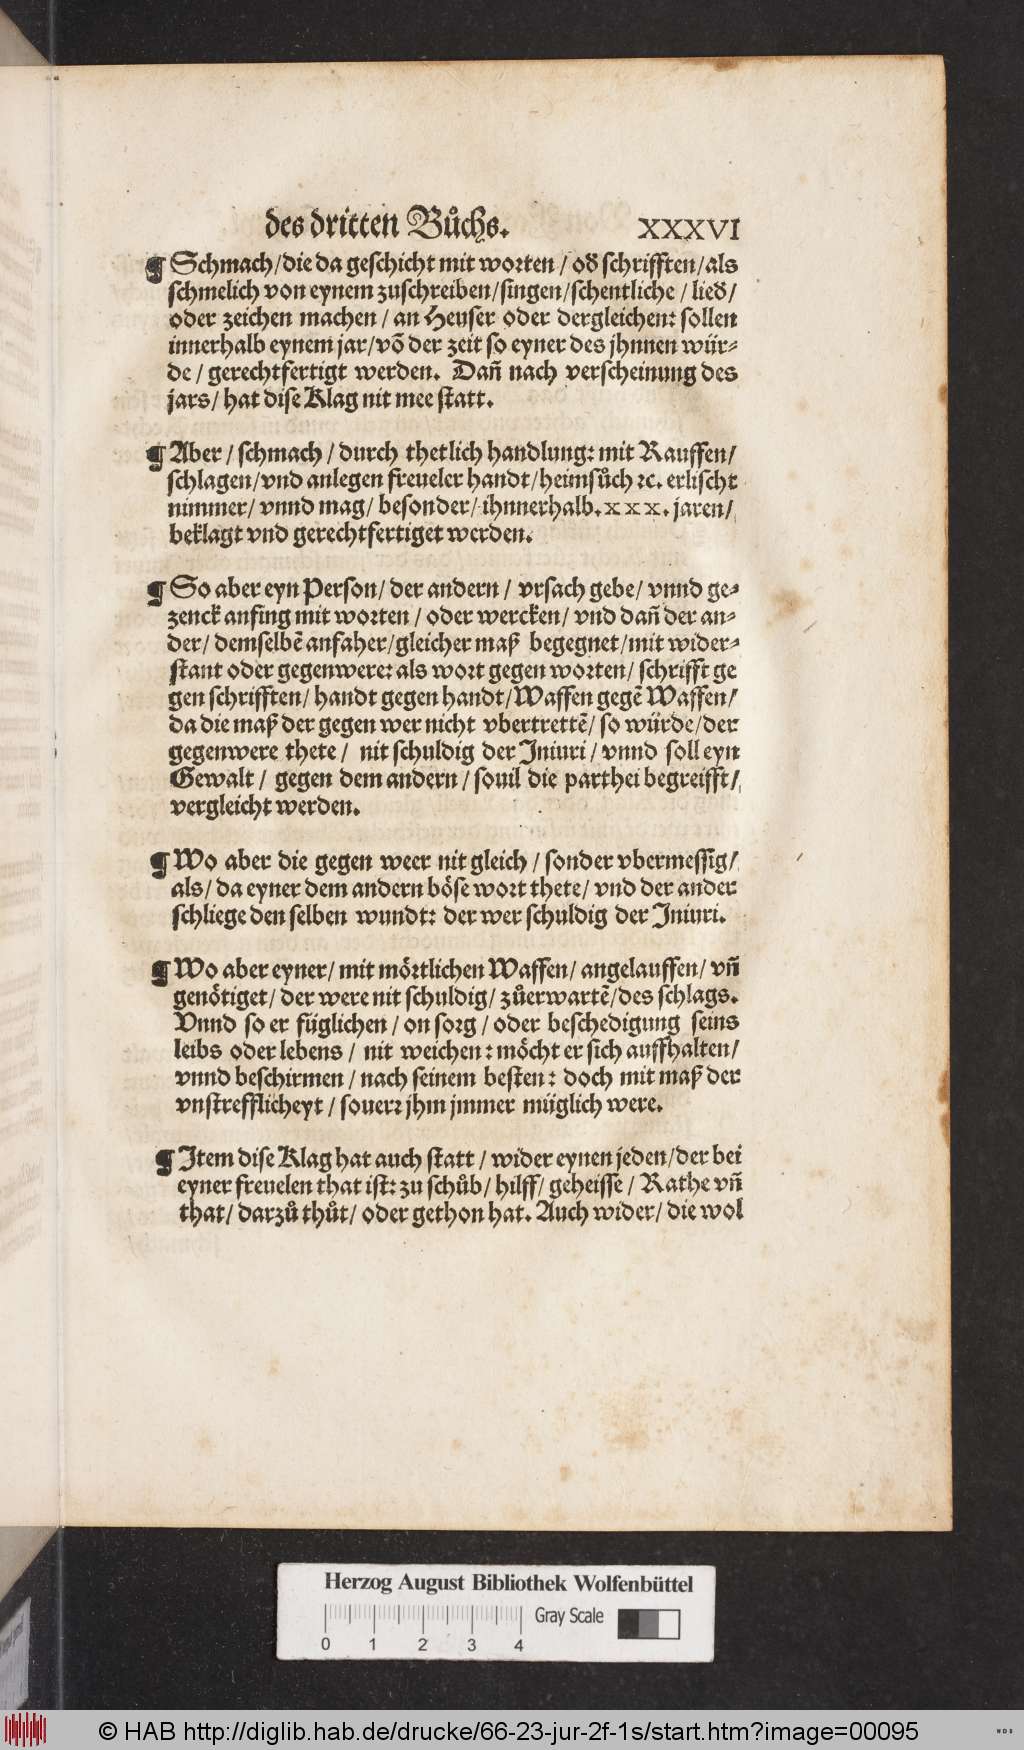 des dritten Bůchs. XXXVI
¶ Schmach/die da geschicht mit worten / od̕ schrifften/als
schmelich von eynem zuschreiben/singen/schentliche / lied̕/
oder zeichen machen / an Heuser oder dergleichen: sollen
innerhalb eynem jar/võ der zeit so eyner des jhnnen wür-
de / gerechtfertigt werden. Dañ nach verscheinung des
jars/ hat dise Klag nit mee statt.
¶ Aber / schmach / durch thetlich handlung: mit Rauffen/
schlagen/vnd anlegen freueler handt/heimsůch ꝛc. erlischt
nimmer/ vnnd mag/ besonder/ ihnnerhalb.xxx. jaren/
beklagt vnd gerechtfertiget werden.
¶ So aber eyn Person/ der andern / vrsach gebe/ vnnd ge-
zenck anfing mit worten / oder wercken/ vnd dañ der an-
der/ demselbẽ anfaher/gleicher maß begegnet/mit wider-
stant oder gegenwere: als wort gegen worten/ schrifft ge
gen schrifften/ handt gegen handt/Waffen gegẽ Waffen/
da die maß der gegen wer nicht vbertrettẽ/ so würde/der
gegenwere thete / nit schuldig der Iniuri / vnnd soll eyn
Gewalt / gegen dem andern / souil die parthei begreifft/
vergleicht werden.
¶ Wo aber die gegen weer nit gleich / sonder vbermessig/
als/ da eyner dem andern böse wort thete/ vnd der ander
schliege den selben wundt: der wer schuldig der Iniuri.
¶ Wo aber eyner/ mit mörtlichen Waffen/ angelauffen/ vñ
genötiget/ der were nit schuldig/ zůerwartẽ/des schlags.
Vnnd so er füglichen / on sorg / oder beschedigung seins
leibs oder lebens / nit weichen: möcht er sich auffhalten/
vnnd beschirmen / nach seinem besten: doch mit maß der
vnstrefflicheyt / souerꝛ jhm jmmer müglich were.
¶ Item dise Klag hat auch statt / wider eynen jeden/der bei
eyner freuelen that ist: zu schůb/ hilff/ geheisse / Rathe vñ
that/ darzů thůt/ oder gethon hat. Auch wider/ die wol
Herzog August Bibliothek Wolfenbüttel
Gray Scale
0 1 2 3 4
© HAB http://diglib.hab.de/drucke/66-23-jur-2f-1s/start.htm?image=00095